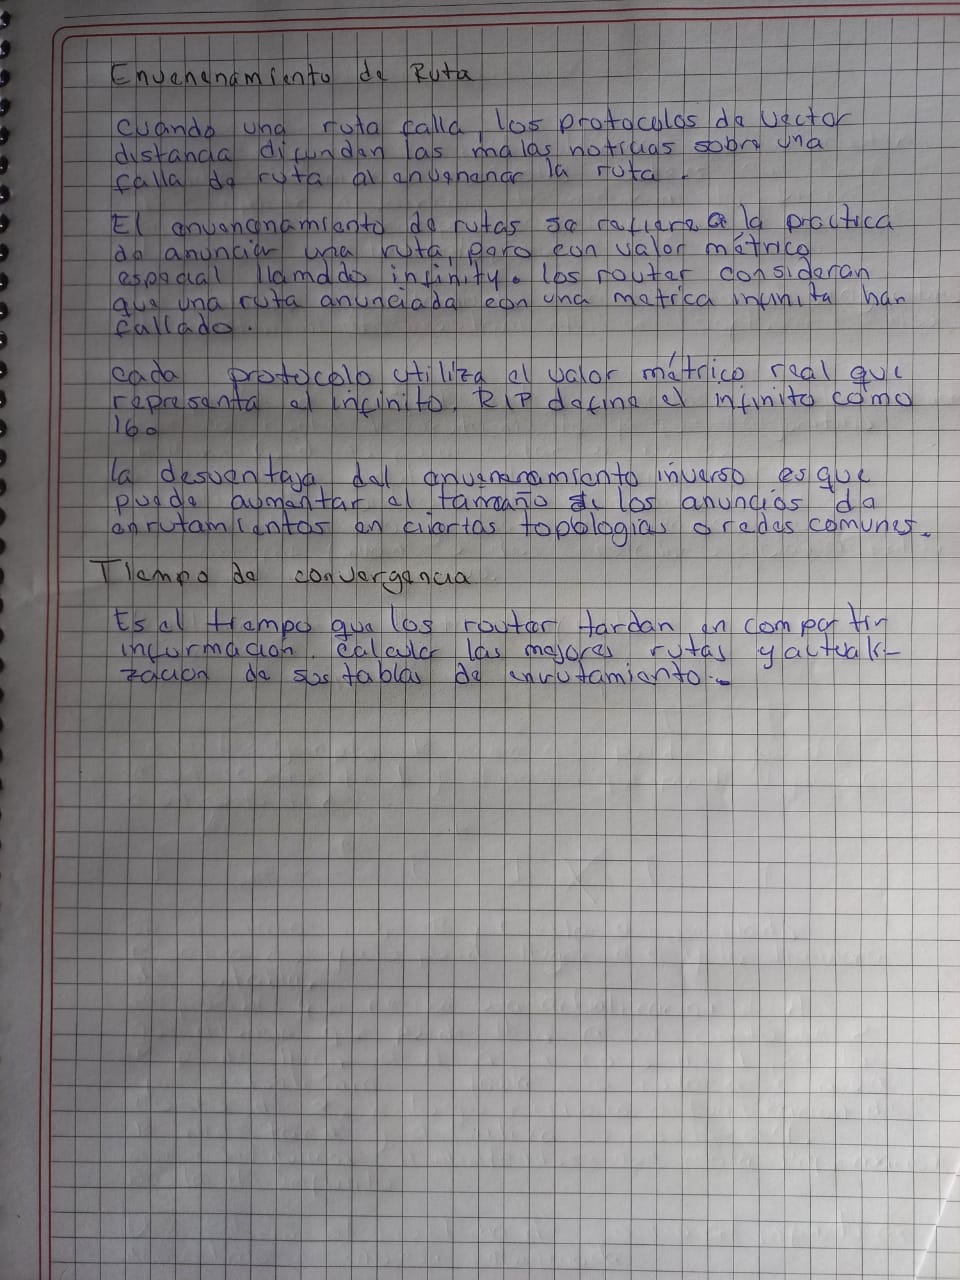 Envenenamiento de Ruta
cuando una ruta falla, los protocolos de vector
distancia difunden las malas noticias sobre una
falla de ruta al envenenar la ruta.
El envenenamiento de rutas se refiere a la practica
de anunciar una ruta, pero con valor métrico
especial llamado infinity. los router consideran
que una ruta anunciada con una metrica infinita han
fallado.
cada protocolo utiliza el valor métrico real que
representa el infinito. RIP define el infinito como
16.
la desventaja del envenenamiento inverso es que
puede aumentar el tamaño de los anuncios de
enrutamientos en ciertas topologias o redes comunes.
Tiempo de convergencia
Es el tiempo que los router tardan en compartir
informacion, calcular las mejores rutas y actuali-
zacion de sus tablas de enrutamiento.